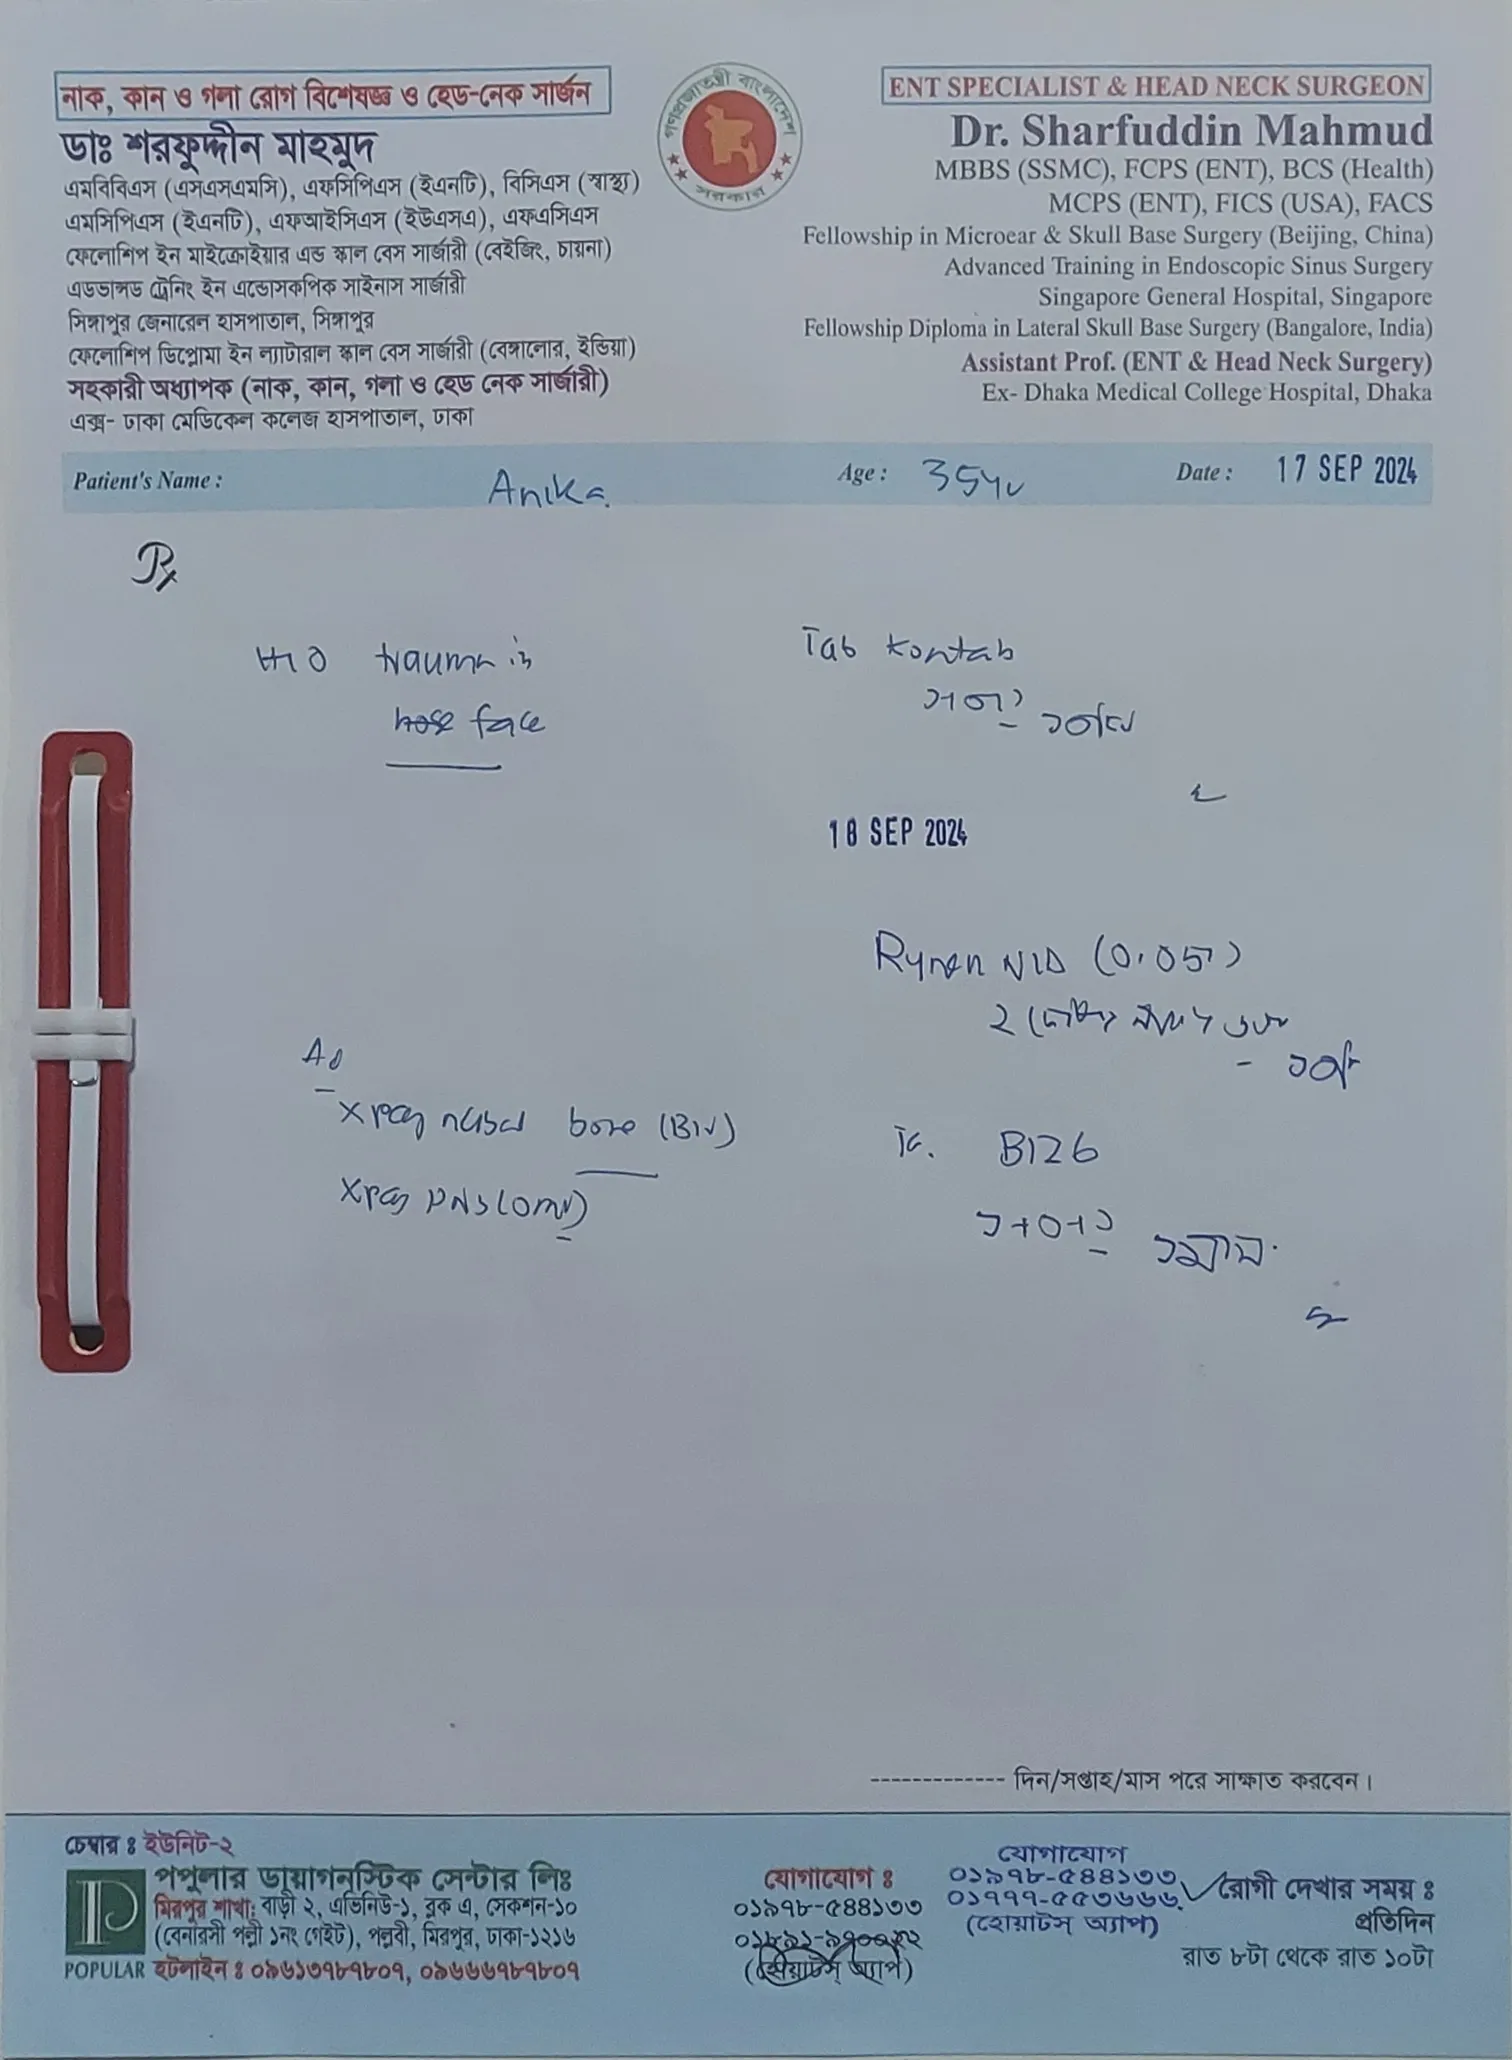 নাক, কান ও গলা রোগ বিশেষজ্ঞ ও হেড-নেক সার্জন
ডাঃ শরফুদ্দীন মাহমুদ
এমবিবিএস (এসএসএমসি), এফসিপিএস (ইএনটি), বিসিএস (স্বাস্থ্য)
এমসিপিএস (ইএনটি), এফআইসিএস (ইউএসএ), এফএসিএস
ফেলোশিপ ইন মাইক্রোইয়ার এন্ড স্কাল বেস সার্জারী (বেইজিং, চায়না)
এডভান্সড ট্রেনিং ইন এন্ডোসকপিক সাইনাস সার্জারী
সিঙ্গাপুর জেনারেল হাসপাতাল, সিঙ্গাপুর
ফেলোশিপ ডিপ্লোমা ইন ল্যাটারাল স্কাল বেস সার্জারী (বেঙ্গালোর, ইন্ডিয়া)
সহকারী অধ্যাপক (নাক, কান, গলা ও হেড নেক সার্জারী)
এক্স- ঢাকা মেডিকেল কলেজ হাসপাতাল, ঢাকা
গণপ্রজাতন্ত্রী বাংলাদেশ
সরকার
ENT SPECIALIST & HEAD NECK SURGEON
Dr. Sharfuddin Mahmud
MBBS (SSMC), FCPS (ENT), BCS (Health)
MCPS (ENT), FICS (USA), FACS
Fellowship in Microear & Skull Base Surgery (Beijing, China)
Advanced Training in Endoscopic Sinus Surgery
Singapore General Hospital, Singapore
Fellowship Diploma in Lateral Skull Base Surgery (Bangalore, India)
Assistant Prof. (ENT & Head Neck Surgery)
Ex- Dhaka Medical College Hospital, Dhaka
Patient's Name : Anika Age : 35yr Date : 17 SEP 2024
Rx
H/O trauma in
face
Xray nasal bone (B/V)
Xray PNS (OMV)
Tab
18 SEP 2024
Rynex N/D (0.05%)
B126
১+০+১ ১মাস
------------- দিন/সপ্তাহ/মাস পরে সাক্ষাত করবেন।
চেম্বার ঃ ইউনিট-২
পপুলার ডায়াগনস্টিক সেন্টার লিঃ
মিরপুর শাখা: বাড়ী ২, এভিনিউ-১, ব্লক এ, সেকশন-১০
(বেনারসী পল্লী ১নং গেইট), পল্লবী, মিরপুর, ঢাকা-১২১৬
POPULAR হটলাইন ঃ ০৯৬১৩৭৮৭৮০৭, ০৯৬৬৬৭৮৭৮০৭
যোগাযোগ ঃ
০১৯৭৮-৫৪৪১৩৩
(হোয়াটস্ অ্যাপ)
যোগাযোগ
০১৯৭৮-৫৪৪১৩৩
০১৭৭৭-৫৫৩৬৬৬
(হোয়াটস্ অ্যাপ)
রোগী দেখার সময় ঃ
প্রতিদিন
রাত ৮টা থেকে রাত ১০টা